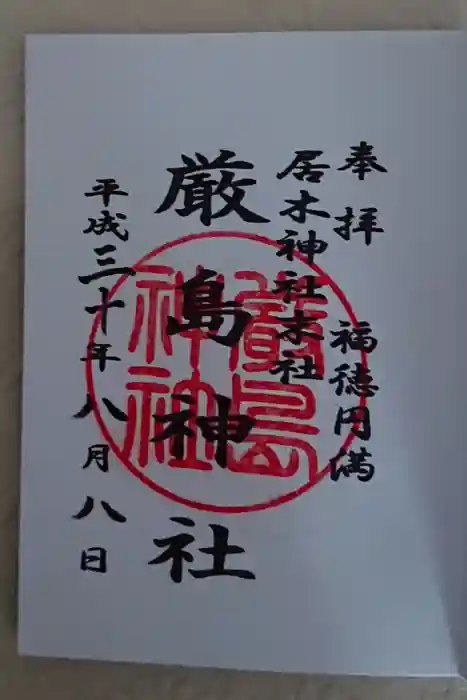 奉拝 福徳円満
居木神社末社
厳島神社
平成三十年八月八日
嚴島
神社